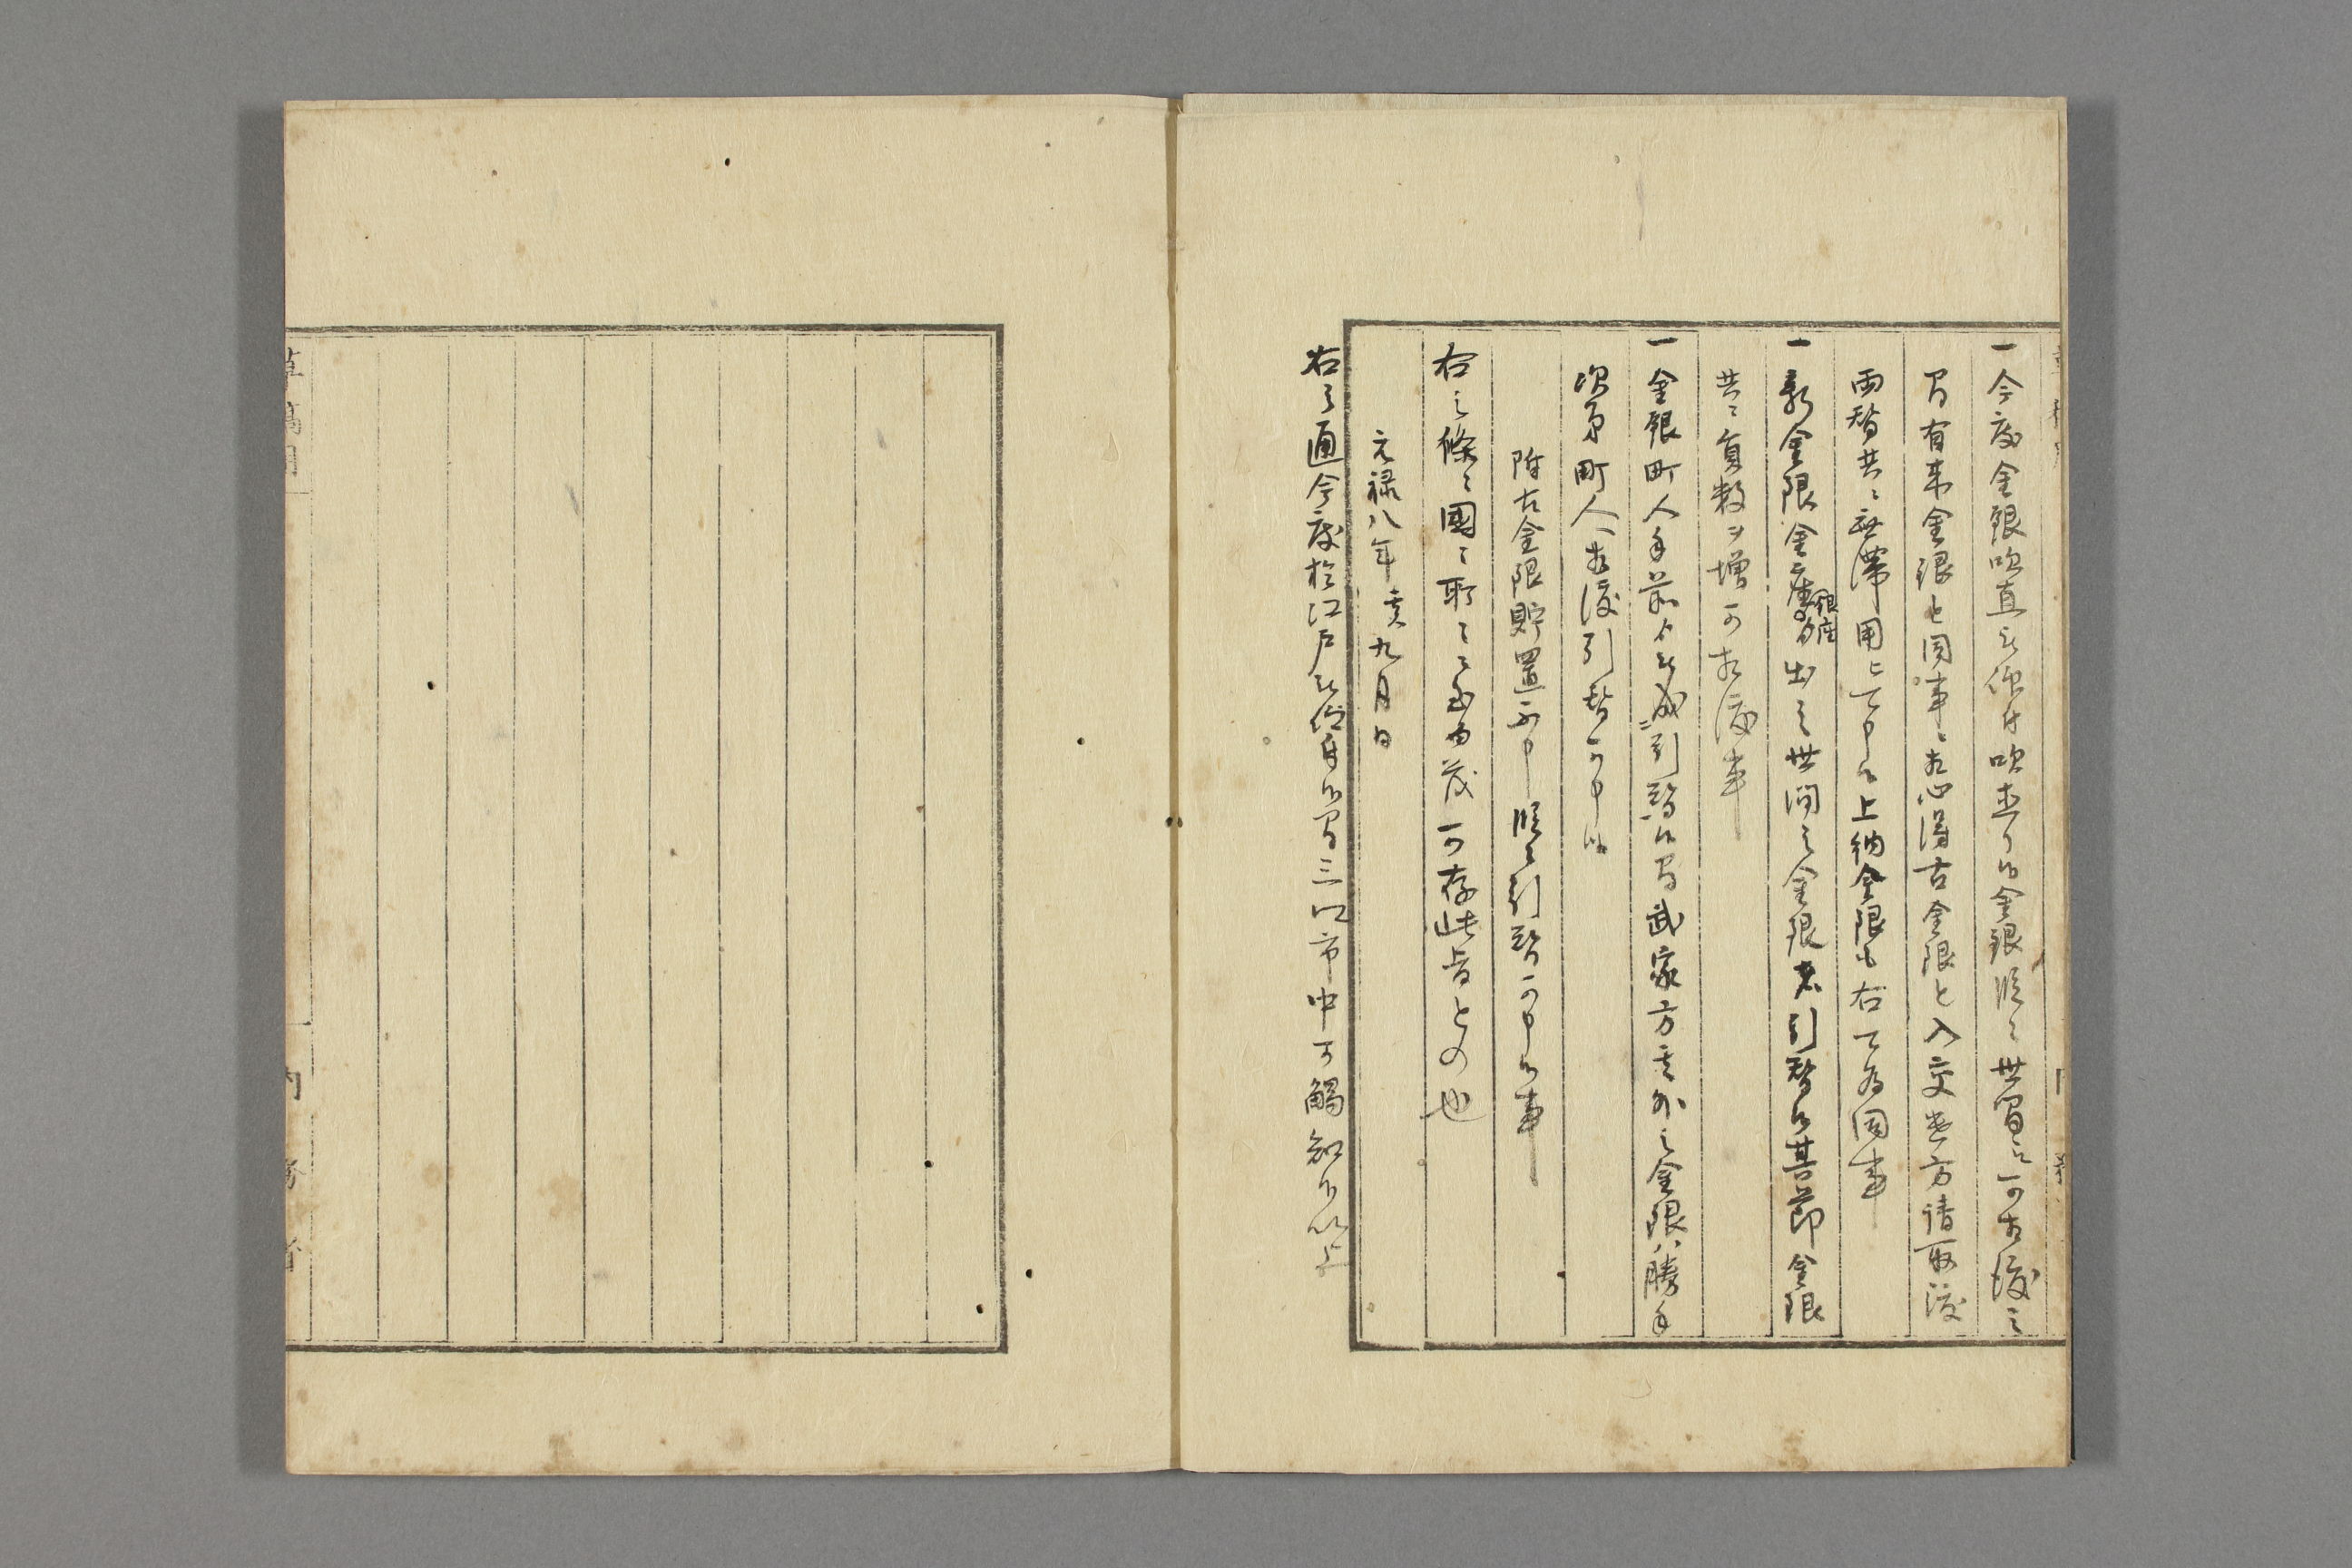 一今度金銀吹直被仰付吹直り候金銀段々世間江可相渡之
間有来金銀と同事ニ相心得古金銀と入交遣方請取渡
両替共ニ無滞用ひ可申候上納金銀も右可為同事
一新金銀金座銀座ゟ出之世間之金銀者引替候其節金銀
共ニ員数ヲ増可相渡事
一金銀町人手前ゟ段々ニ引替候間武家方其外之金銀ハ勝手
次第町人相渡引替可申候
附古金銀貯置不申段々引替可申候事
右之條々國々所々ニ至迄可存此旨もの也
元禄八年亥九月日
右之通今度於江戸被仰付候間三口市中可觸知候以上
草稿用
内務省